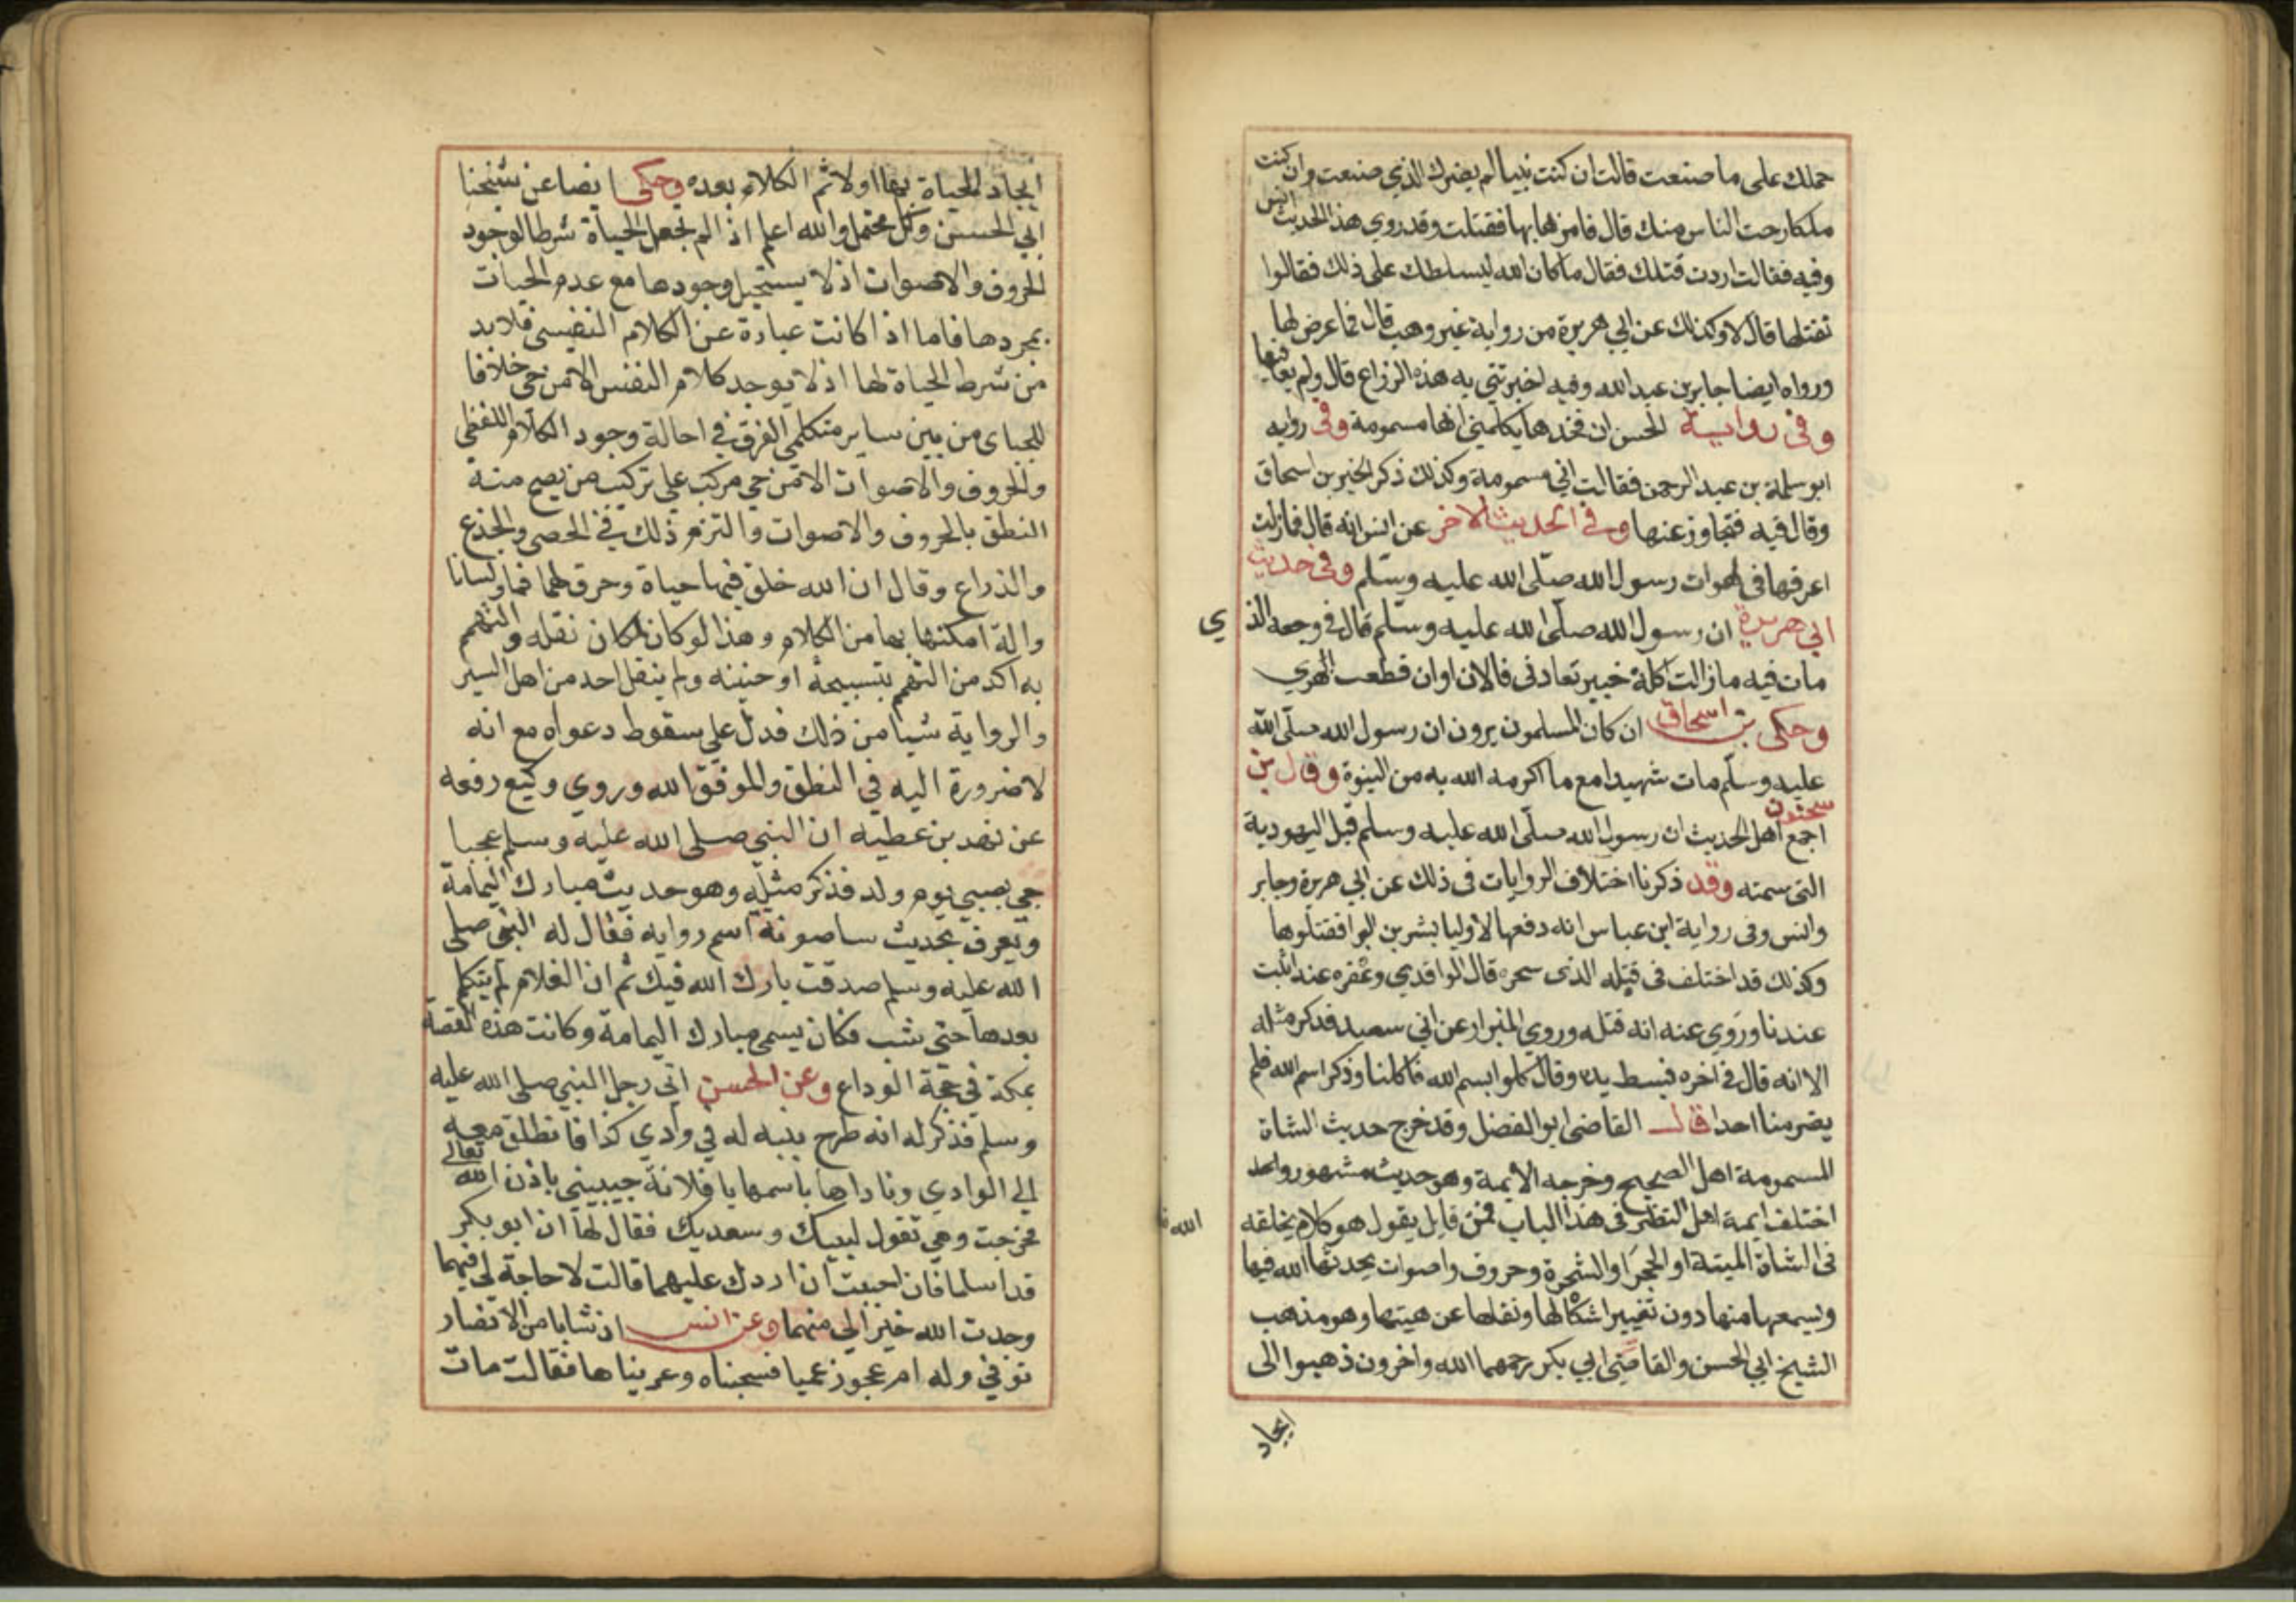 حملك على ما صنعت قالت ان كنت نبيا لم يضرك الذي صنعت وان كنت
ملكا ارحت الناس منك قال فامر بها فقتلت وقد روى هذا الحديث انس
وفيه فقالت اردت قتلك فقال ما كان الله ليسلطك على ذلك فقالوا
نقتلها قال لا وكذلك عن ابي هريرة من رواية غير وهب قال فما عرض لها
ورواه ايضا جابر بن عبد الله وفيه اخبرتني به هذه الزراع قال ولم يعاقبها
وفى رواية الحسن ان فخذها يكلمني انها مسمومة وفى رواية
ابو سلمة بن عبد الرحمن فقالت اني مسمومة وكذلك ذكر الخبر بن اسحاق
وقال فيه فتجاوز عنها وفي الحديث الاخر عن انس انه قال فمازلت
اعرفها فى لهوات رسول الله صلى الله عليه وسلم وفى حديث
ابي هريرة ان رسول الله صلى الله عليه وسلم قال فى وجعه الذي
مات فيه مازالت اكلة خيبر تعادنى فالان اوان قطعت ابهري
وحكى بن اسحاق ان كان المسلمون يرون ان رسول الله صلى الله
عليه وسلم مات شهيدا مع ما اكرمه الله به من النبوة وقال بن
سحنون
اجمع اهل الحديث ان رسول الله صلى الله عليه وسلم قتل اليهودية
التى سمته وقد ذكرنا اختلاف الروايات فى ذلك عن ابي هريرة وجابر
وانس وفى رواية ابن عباس انه دفعها لاوليا بشر بن البرا فقتلوها
وكذلك قد اختلف فى قتله الذى سحره قال الواقدي وعفوه عنه اثبت
عندنا وروي عنه انه قتله وروى البزار عن ابي سعيد فذكر مثله
الا انه قال فى اخره فبسط يده وقال كلوا بسم الله فاكلنا وذكر اسم الله فلم
يضر منا احدا قال القاضى ابو الفضل وقد خرج حديث الشاة
المسمومة اهل الصحيح وخرجه الايمة وهو حديث مشهور واحد
اختلف ايمة اهل النظر فى هذا الباب فمن قايل يقول هو كلام يخلقه الله
فى الشاة الميتة او الحجر او الشجرة وحروف واصوات يحدثها الله فيها
ويسمعها منها دون تغيير اشكالها ونقلها عن هيتها وهو مذهب
الشيخ ابي الحسن والقاضي ابي بكر رحمهما الله واخرون ذهبوا الى
ايجاد
ايجاد الحياة بها اولا ثم الكلام بعده وحكى ايضا عن شيخنا
ابي الحسن وكل محتمل والله اعلم اذ الم نجعل الحياة شرطا لوجود
الحروف والاصوات اذ لا يستحيل وجودها مع عدم الحيات
بمجردها فاما اذا كانت عبارة عن الكلام النفسي فلا بد
من شرط الحياة لها اذ لا يوجد كلام النفس الا من حي خلافا
للجباى من بين ساير متكلمي الفرق في احالة وجود الكلام اللفظي
والحروف والاصوات الا من حي مركب علي تركيب من يصح منه
النطق بالحروف والاصوات والتزم ذلك في الحصى والجذع
والذراع وقال ان الله خلق فيها حياة وخرق لهما فما ولسانا
والة امكنها بها من الكلام وهذا لو كان لكان نقله والتهمم
به اكد من التهمم بتسبيحة او حنينه ولم ينقل احد من اهل السير
والرواية شيا من ذلك فدل علي سقوط دعواه مع انه
لا ضرورة اليه في النظق والموفق الله وروي وكيع رفعه
عن نهد بن عطيه ان النبي صلى الله عليه وسلم عجبا
جي بصبي يوم ولد فذكر مثله وهو حديث مبارك اليمامة
ويعرف بحديث ساصونة اسم روايه فقال له النبي صلى
الله عليه وسلم صدقت بارك الله فيك ثم ان الغلام لم يتكلم
بعدها حتى شب فكان يسمى مبارك اليمامة وكانت هذه القصة
بمكة في حجة الوداع وعن الحسن اتى رجل النبي صلى الله عليه
وسلم فذكر له انه طرح بنيه له في وادي كذا فانطلق معه
الي الوادي وناداها باسمها يا فلانة جيبيني باذن الله تعالى
فخرجت وهي تقول لبيك وسعديك فقال لها ان ابو بكر
قد اسلما فان احببت ان اردك عليهما قالت لا حاجة لي فيهما
وجدت الله خيرا لي منهما وعن انس ان شابا من الانصار
توفي وله ام عجوز عميا فسجيناه وعزيناها فقالت مات